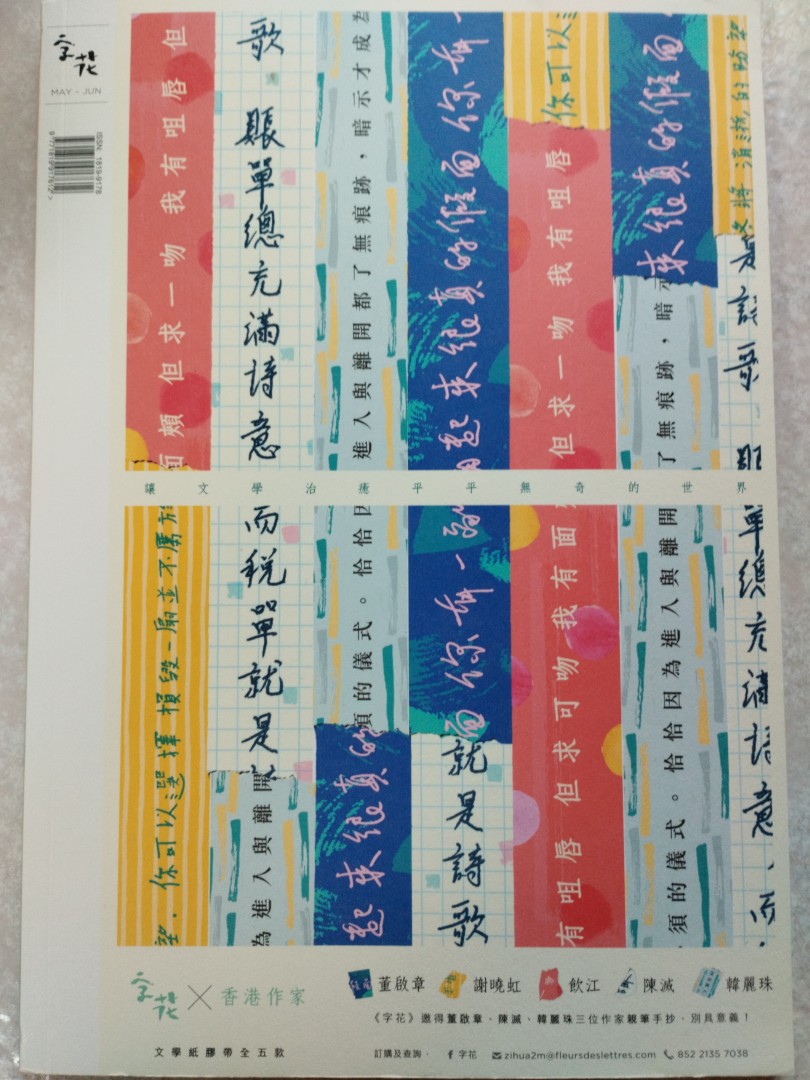 字花
MAY - JUN
ISSN: 1819-9178
有頰 但求一吻 我有咀唇 但
歌 賬單總充滿詩意
進入與離開都了無痕跡，暗示才成為
起來很真的假面 你有一
你可以
但求一吻 我有咀唇
來很真的假面
了無痕跡，暗示
是詩歌 賬
讓文學治癒平平無奇的世界
望．你可以選擇損毀一扇並不屬於
而稅單就是
為進入與離開
須的儀式。恰恰因
起來很真的
面 你有一副
就是詩歌
有咀唇 但求可吻 我有面
須的儀式。恰恰因為進入與離開
單總充滿詩意，而
字花 × 香港作家
董啟章 謝曉虹 飲江 陳滅 韓麗珠
《字花》邀得董啟章、陳滅、韓麗珠三位作家親筆手抄，別具意義！
文學紙膠帶全五款
訂購及查詢． f 字花 zihua2m@fleursdeslettres.com 852 2135 7038